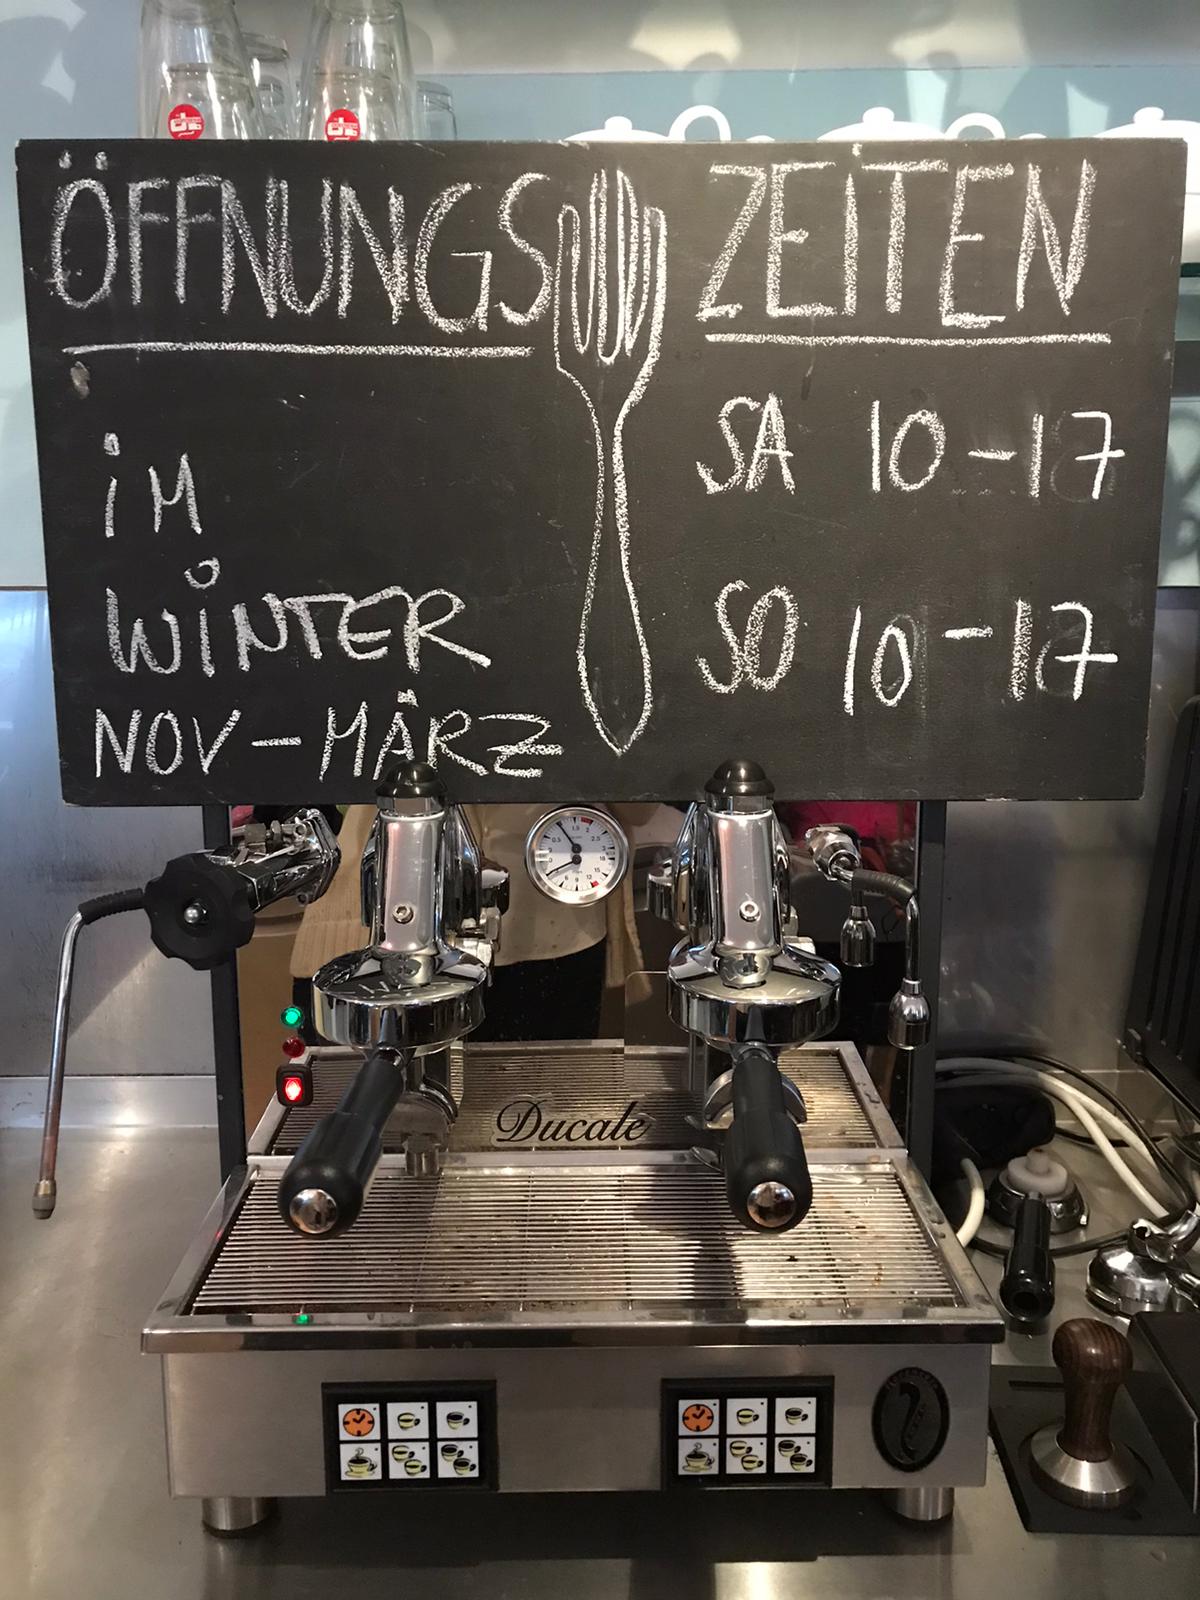 ÖFFNUNGS ZEITEN
IM
WINTER
NOV - MÄRZ
SA 10-17
SO 10-17
Ducale